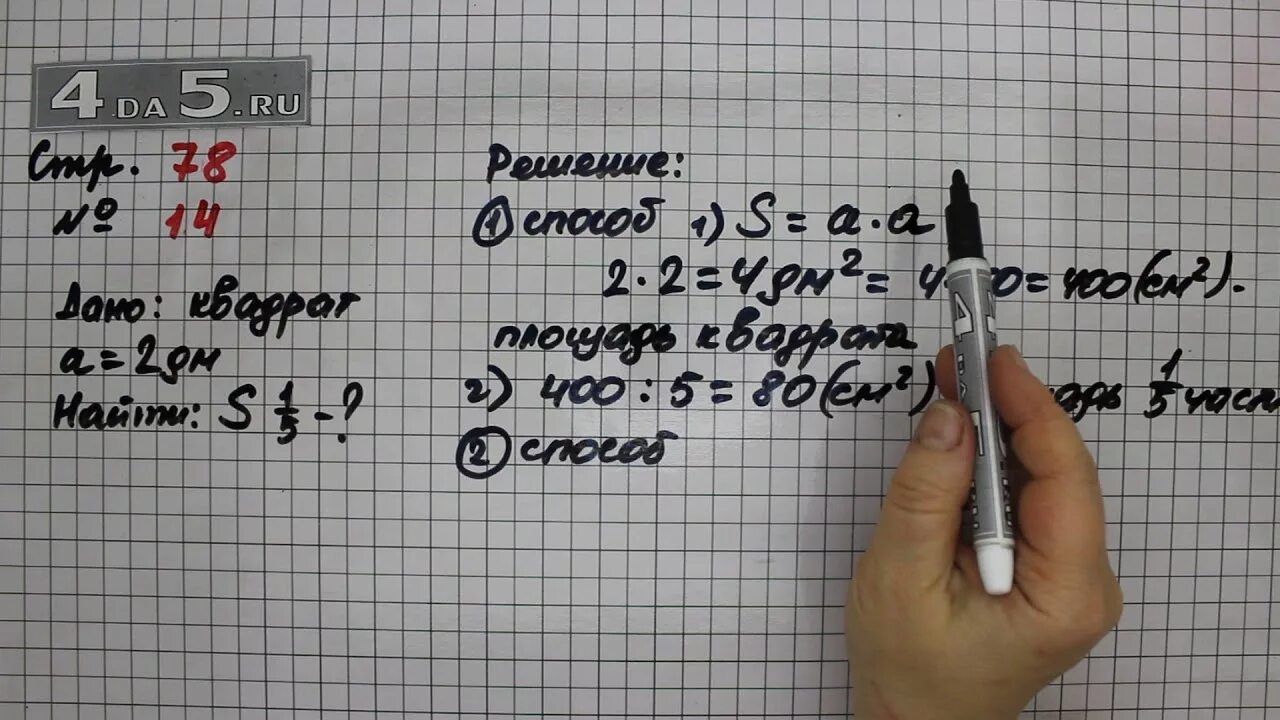 4DA5.RU
Стр. 78
№ 14
Дано: квадрат
a = 2дм
Найти: S 1/5 - ?
Решение:
① способ 1) S = a · a
2 · 2 = 4дм² = 4 0 = 400(см²).
площадь квадрата
2) 400 : 5 = 80(см²) 1/5
② способ